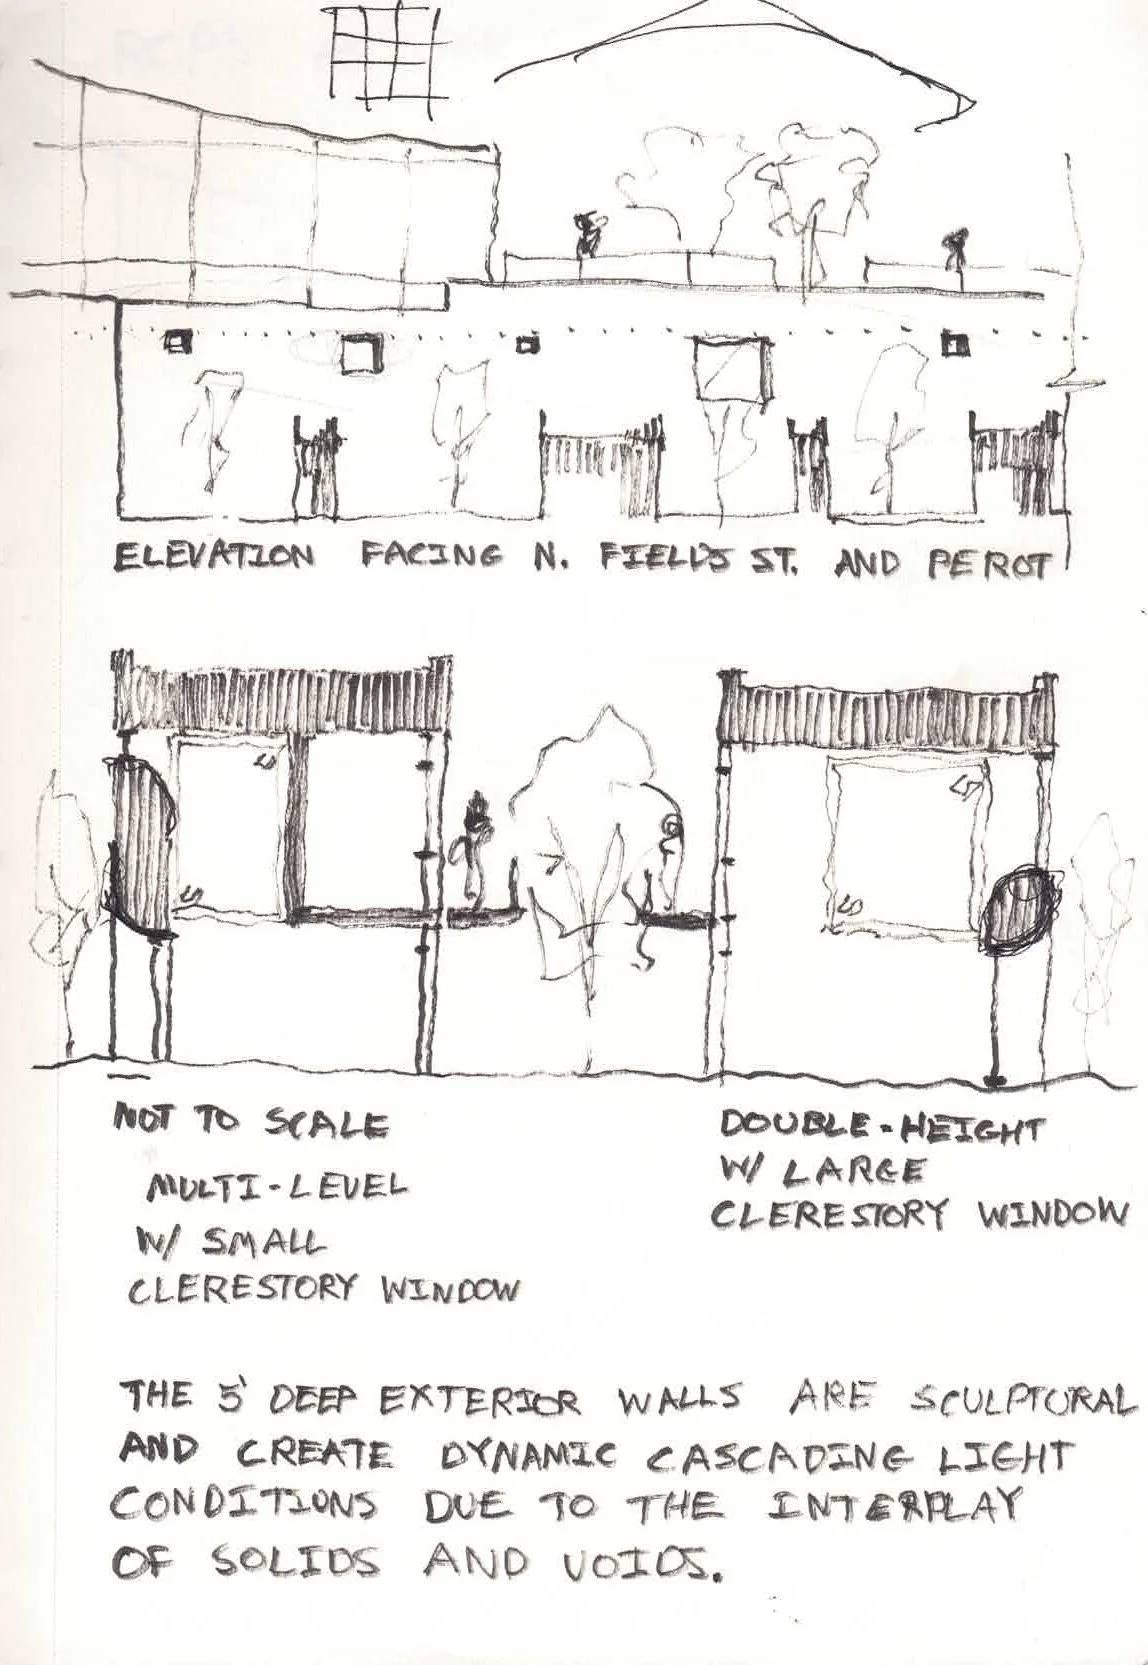 ELEVATION FACING N. FIELDS ST. AND PEROT
NOT TO SCALE
MULTI-LEVEL
W/ SMALL
CLERESTORY WINDOW
DOUBLE-HEIGHT
W/ LARGE
CLERESTORY WINDOW
THE 5' DEEP EXTERIOR WALLS ARE SCULPTURAL
AND CREATE DYNAMIC CASCADING LIGHT
CONDITIONS DUE TO THE INTERPLAY
OF SOLIDS AND VOIDS.